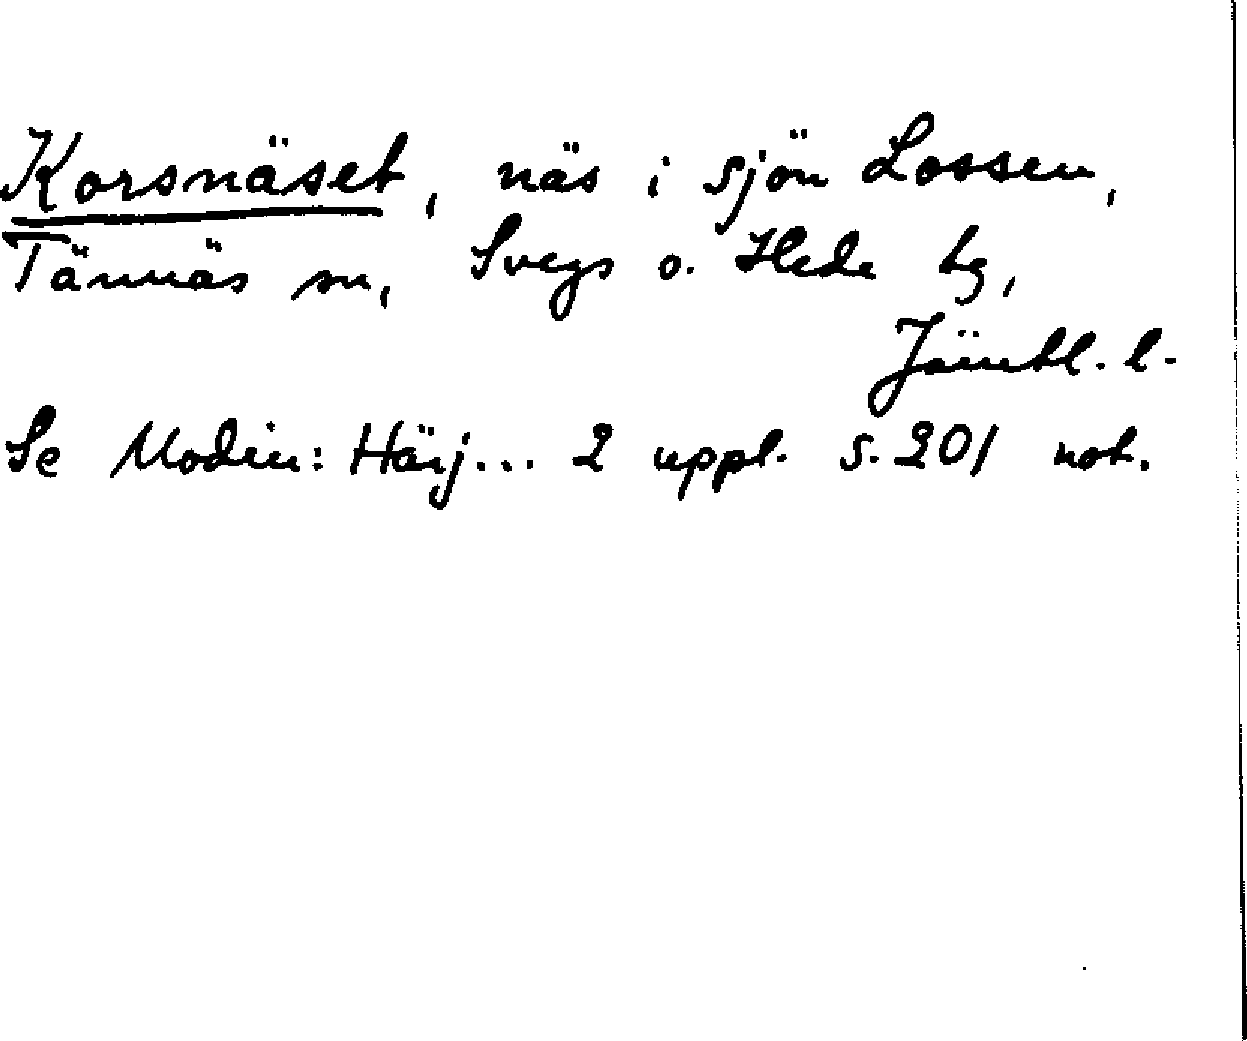 Korsnäset, näs i sjön Lossen,
Tännäs sn, Svegs o. Hede tg,
Jämtl. l.
Se Modin: Härj... 2 uppl. s. 201 not.